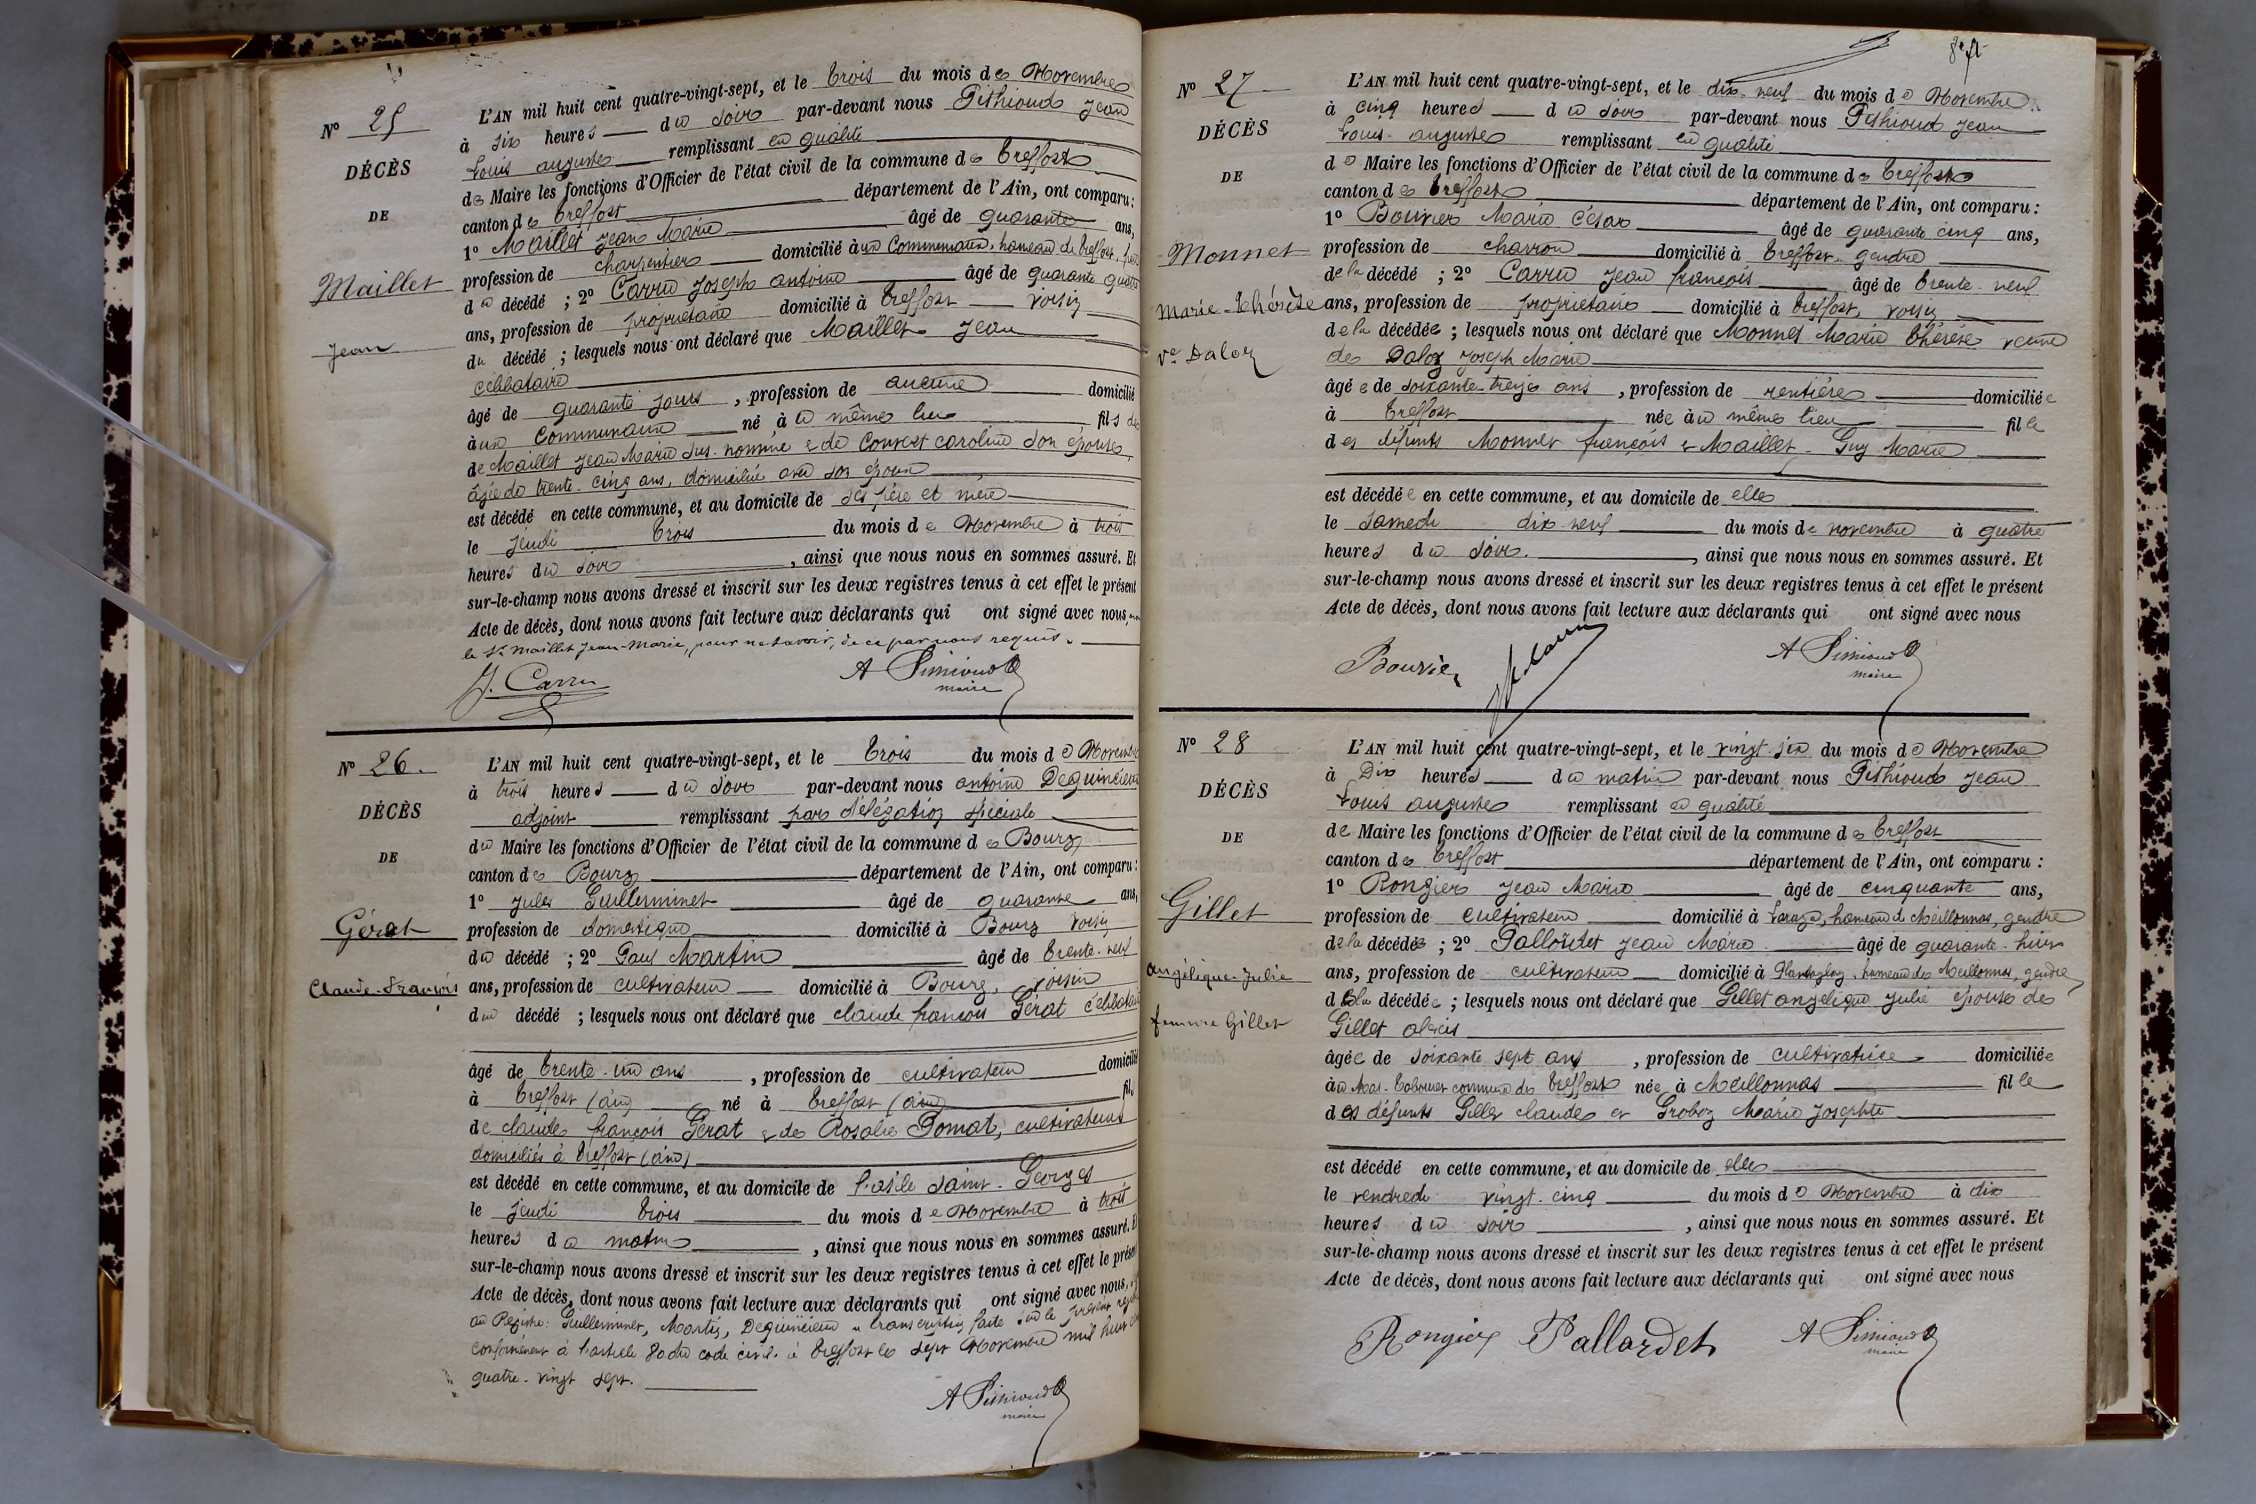 Nº 25
DÉCÈS
DE
Maillet
Jean
L'AN mil huit cent quatre-vingt-sept, et le trois du mois de Novembre
à six heures du soir par-devant nous Pithioud Jean
Louis auguste remplissant en qualité
de Maire les fonctions d'Officier de l'état civil de la commune de Treffort
canton de Treffort département de l'Ain, ont comparu :
1º Maillet Jean Marie âgé de quarante ans,
profession de charpentier domicilié à la Commune, hameau de Treffort, père
du décédé ; 2º Carru Joseph antoine âgé de quarante quatre
ans, profession de propriétaire domicilié à Treffort voisin
du décédé ; lesquels nous ont déclaré que Maillet Jean
célibataire
âgé de quarante jours , profession de aucune domicilié
à né à ce même lieu fils de
de Maillet Jean Marie sus-nommé & de Convert caroline son épouse,
âgée de trente-cinq ans, domiciliée avec son époux
est décédé en cette commune, et au domicile de ses père et mère
le jeudi trois du mois de Novembre à trois
heures du soir , ainsi que nous nous en sommes assuré. Et
sur-le-champ nous avons dressé et inscrit sur les deux registres tenus à cet effet le présent
Acte de décès, dont nous avons fait lecture aux déclarants qui ont signé avec nous, non
le Sr Maillet Jean-Marie, pour ne savoir, de ce par nous requis.
J. Carru A Pithioud
maire
Nº 26.
DÉCÈS
DE
Gérat
Claude-François
L'AN mil huit cent quatre-vingt-sept, et le trois du mois de Novembre
à trois heures du soir par-devant nous antoine Dequincieux
adjoint remplissant par délégation spéciale
du Maire les fonctions d'Officier de l'état civil de la commune de Bourg
canton de Bourg département de l'Ain, ont comparu :
1º Jules Guillerminet âgé de quarante ans,
profession de domestique domicilié à Bourg voisin
du décédé ; 2º Paul Martin âgé de trente-neuf
ans, profession de cultivateur domicilié à Bourg, voisin
du décédé ; lesquels nous ont déclaré que claude françois Gérat célibataire
âgé de trente-un ans , profession de cultivateur domicilié
à Treffort (ain) né à Treffort (ain) fils
de claude françois Gérat & de Rosalie Pomat, cultivateurs
domiciliés à Treffort (ain)
est décédé en cette commune, et au domicile de l'asile Saint-Georges
le jeudi trois du mois de Novembre à trois
heures du matin , ainsi que nous nous en sommes assuré. Et
sur-le-champ nous avons dressé et inscrit sur les deux registres tenus à cet effet le présent
Acte de décès, dont nous avons fait lecture aux déclarants qui ont signé avec nous,
au Registre: Guillerminet, Martin, Dequincieux transcription faite sur le présent registre
conformément à l'article 80 du code civil à Treffort le sept Novembre mil huit cent
quatre-vingt sept.
A Pithioud
maire
8e ft
Nº 27
DÉCÈS
DE
Monnet
Marie-Thérèse
Ve Daloz
L'AN mil huit cent quatre-vingt-sept, et le dix-neuf du mois de Novembre
à cinq heures du soir par-devant nous Pithioud Jean
Louis-auguste remplissant en qualité
de Maire les fonctions d'Officier de l'état civil de la commune de Treffort
canton de Treffort département de l'Ain, ont comparu :
1º Bouvier Marie César âgé de quarante cinq ans,
profession de charron domicilié à Treffort gendre
de la décédé ; 2º Carru Jean françois âgé de trente-neuf
ans, profession de propriétaire domicilié à Treffort, voisin
de la décédée ; lesquels nous ont déclaré que Monnet Marie Thérèse veuve
de Daloz Joseph Marie
âgée de soixante-treize ans , profession de rentière domiciliée
à Treffort née à ce même lieu fille
des défunts Monnet françois & Maillet-Guy Marie
est décédée en cette commune, et au domicile de elle
le samedi dix-neuf du mois de novembre à quatre
heures du soir. , ainsi que nous nous en sommes assuré. Et
sur-le-champ nous avons dressé et inscrit sur les deux registres tenus à cet effet le présent
Acte de décès, dont nous avons fait lecture aux déclarants qui ont signé avec nous
Bouvier A Pithioud
maire
Nº 28
DÉCÈS
DE
Gillet
angélique-Julie
femme Gillet
L'AN mil huit cent quatre-vingt-sept, et le vingt-six du mois de Novembre
à Dix heures du matin par-devant nous Pithioud Jean
Louis auguste remplissant en qualité
de Maire les fonctions d'Officier de l'état civil de la commune de Treffort
canton de Treffort département de l'Ain, ont comparu :
1º Rongier Jean Marie âgé de cinquante ans,
profession de cultivateur domicilié à hameau de Meillonnas, gendre
de la décédée ; 2º Pallordet Jean Marie âgé de quarante-huit
ans, profession de cultivateur domicilié à hameau de Meillonnas, gendre
de la décédée ; lesquels nous ont déclaré que Gillet angélique Julie épouse de
Gillet alexis
âgée de soixante sept ans , profession de cultivatrice domiciliée
à commune de Treffort née à Meillonnas fille
des défunts Gillet claude et Groboz Marie Josephte
est décédé en cette commune, et au domicile de elle
le vendredi vingt-cinq du mois de Novembre à dix
heures du soir , ainsi que nous nous en sommes assuré. Et
sur-le-champ nous avons dressé et inscrit sur les deux registres tenus à cet effet le présent
Acte de décès, dont nous avons fait lecture aux déclarants qui ont signé avec nous
Rongier Pallordet A Pithioud
maire